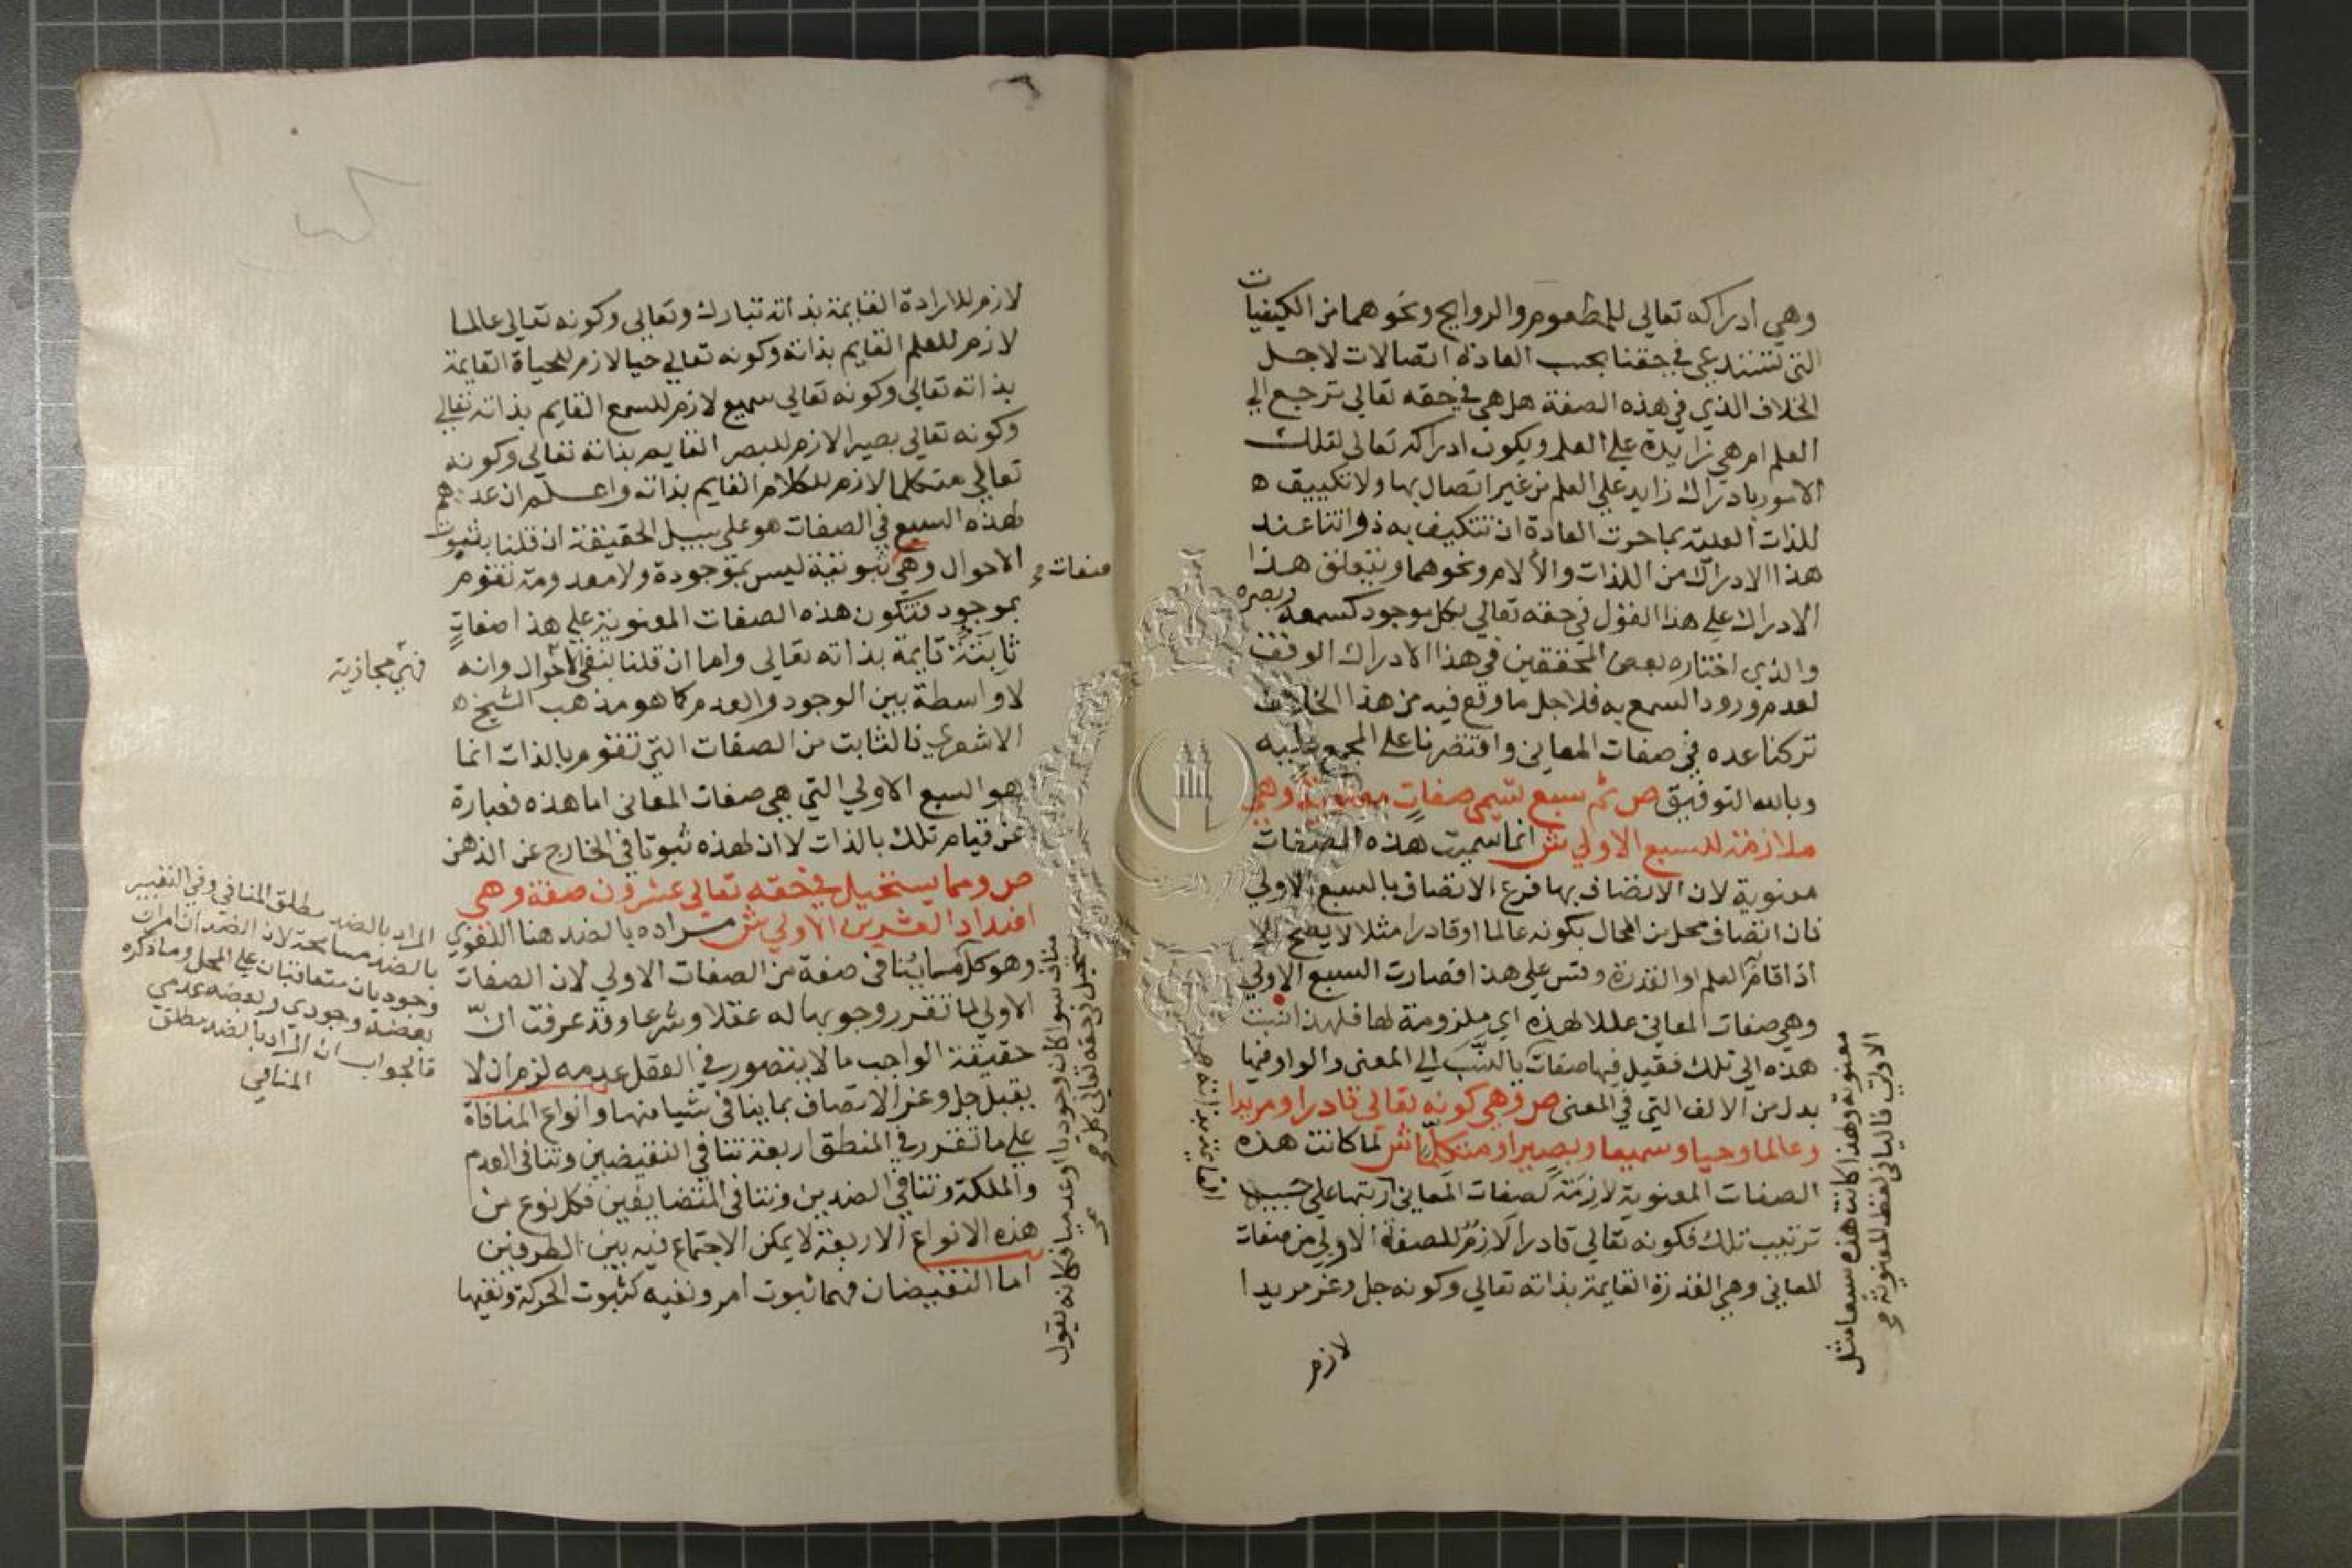 وهي ادراكه تعالي للمطعوم والروايح ونحوهما من الكيفيات
التي تستدعي في حقنا بحسب العادة اتصالات لاجل
الخلاف الذي في هذه الصفة هل هي في حقه تعالي ترجع الي
العلم ام هي زايدة علي العلم ويكون ادراكه تعالي لتلك
الامور بادراك زايد علي العلم من غير اتصال بها ولا تكييف ه
للذات العلية بما جرت العادة ان تتكيف به ذواتنا عند
هذا الادراك من اللذات والألام ونحوهما ويتعلق هذا
الادراك علي هذا القول في حقه تعالي بكل موجود كسمعه وبصره
والذي اختاره بعض المحققين في هذا الادراك الوقف
لعدم ورود السمع به فلاجل ما وقع فيه من هذا الخلاف
تركنا عده في صفات المعاني واقتصرنا علي المجمع عليه
وبالله التوفيق ص ثم سبع تسمي صفاتٍ معنوية وهي
ملازمة للسبع الاولي ش انما سميت هذه الصفات
معنوية لان الاتصاف بها فرع الاتصاف بالسبع الاولي
فان اتصاف محل من المحال بكونه عالما او قادرا مثلا لا يصح الا
اذا قام العلم او القدرة وقس علي هذا فصارت السبع الاولي
وهي صفات المعاني عللا لهذه اي ملزومة لها فلهذا نسبت
هذه الي تلك فقيل فيها صفات بالنسب الي المعنى والواو فيها
بدل من الالف التي في المعنى ص وهي كونه تعالي قادرا ومريدا
وعالما وحيا وسميعا وبصيرا ومتكلما ش لما كانت هذه
الصفات المعنوية لازمة لصفات المعاني رتبها علي حسب
ترتيب تلك فكونه تعالي قادرا لازم للصفة الاولي من صفات
المعاني وهي القدرة القايمة بذاته تعالي وكونه جل وعز مريدا
لازم
معنوية ولهذا كانت هذه سبعا مثل
الاولي فالياني لفظ المعنوية
لازم للارادة القايمة بذاته تبارك وتعالي وكونه تعالي عالما
لازم للعلم القايم بذاته وكونه تعالي حيا لازم للحياة القايمة
بذاته تعالي وكونه تعالي سميع لازم للسمع القايم بذاته تعالي
وكونه تعالي بصيرا لازم للبصر القايم بذاته تعالي وكونه
تعالي متكلما لازم للكلام القايم بذاته واعلم ان عدهم
لهذه السبع في الصفات هو علي سبيل الحقيقة ان قلنا بثبوت
الاحوال وهي ثبوتية ليس بموجودة ولا معدومة تقوم
صفات
بموجود فتكون هذه الصفات المعنوية علي هذا صفاتٍ
ثابتة قايمة بذاته تعالي واما ان قلنا بنفي الاحوال وانه
فهي مجازية
لا واسطة بين الوجود والعدم كما هو مذهب الشيخ ه
الاشعري فالثابت من الصفات التي تقوم بالذات انما
هو السبع الاولي التي هي صفات المعاني اما هذه فعبارة
عن قيام تلك بالذات لا ان لهذه ثبوتا في الخارج عن الذهن
ص ومما يستحيل في حقه تعالي عشرون صفة وهي
اضداد العشرين الاولي ش مراده بالضد هنا اللغوي
وهو كل ما ينافي صفة من الصفات الاولي لان الصفات
الاولي لما تقرر وجوبها له عقلا وشرعا وقد عرفت انّ
حقيقة الواجب ما لا يتصور في العقل عدمه لزم ان لا
يقبل جل وعز الاتصاف بما ينافي شيا منها وانواع المنافاة
علي ما تقرر في المنطق اربعة تنافي النقيضين وتنافي العدم
والملكة وتنافي الضدين وتنافي المتضايفين فكل نوع من
هذه الانواع الاربعة لا يمكن الاجتماع فيه بين الطرفين
اما النقيضان فهما ثبوت امر ونفيه كثبوت الحركة ونفيها
المراد بالضد مطلق المنافي وفي التفسير
بالضد مسامحة لان الضدان امران
وجوديان متعاقبان علي المحل وما ذكره
بعضه وجودي وبعضه عدمي
فالجواب ان المراد بالضد مطلق
المنافي
مناف سوا كان وجوديا او عدميا فكانه يقول
يستحيل في حقه تعالي كل